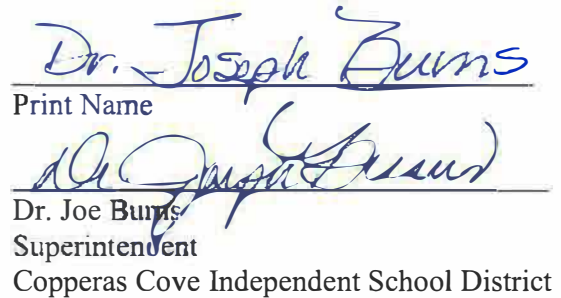 Dr. Joseph Burns
Print Name
Dr Joseph Burns
Dr. Joe Burns
Superintendent
Copperas Cove Independent School District